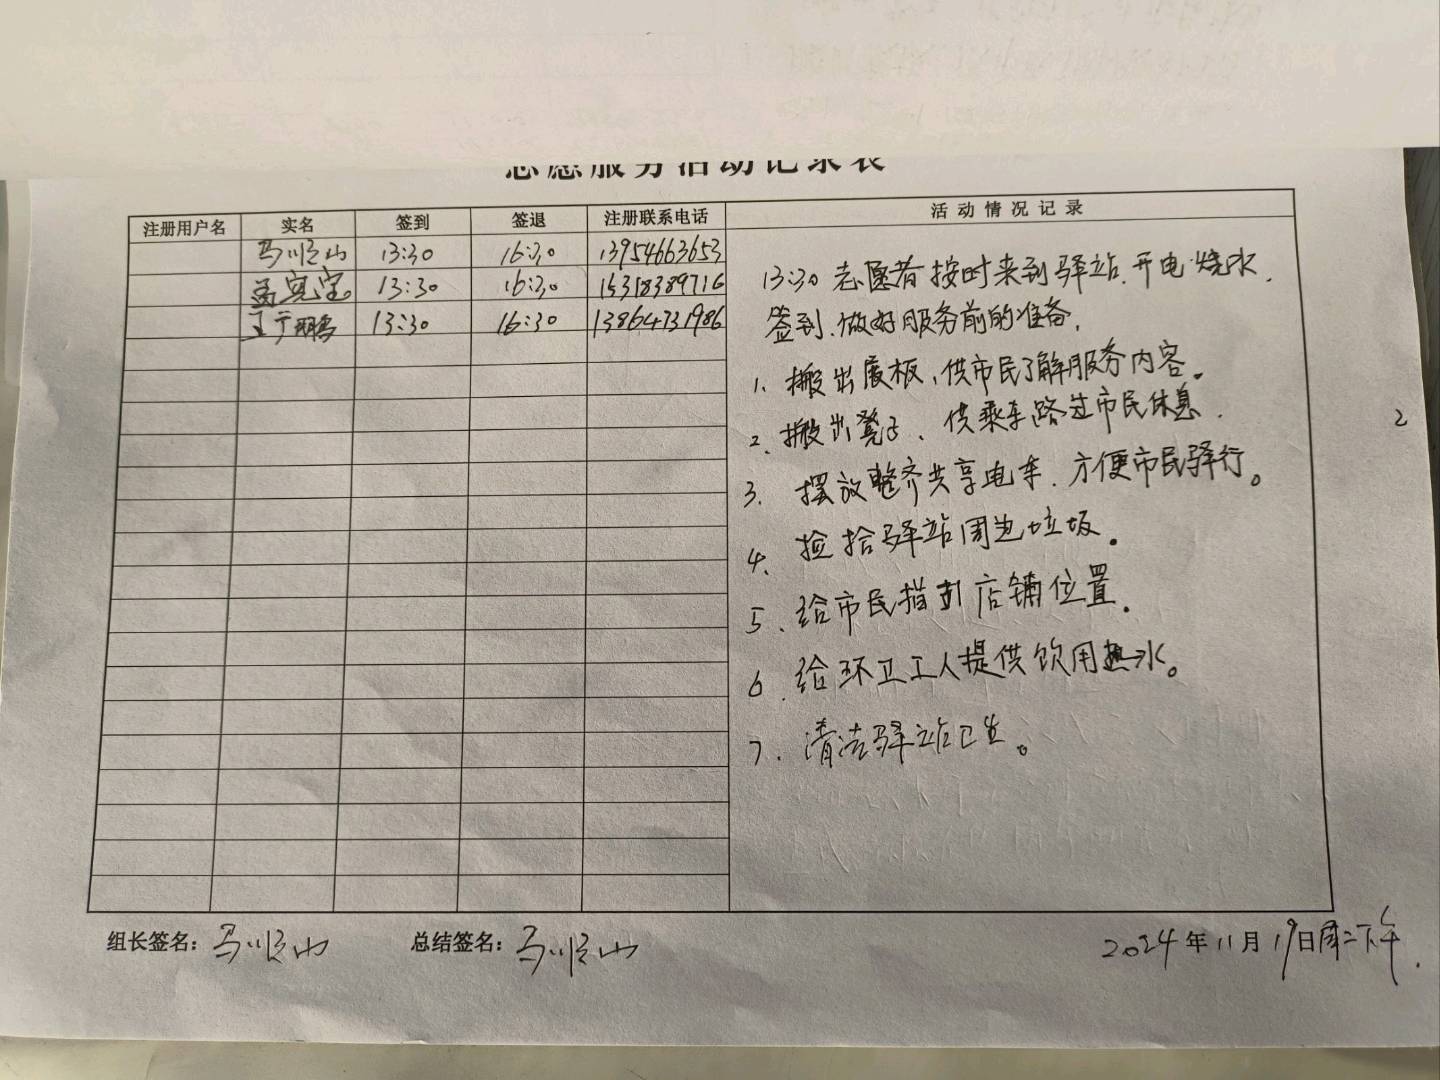 志愿服务活动记录表
注册用户名 实名 签到 签退 注册联系电话 活动情况记录
马顺山 13:30 16:30 13954663653
孟宪宝 13:30 16:30 15318389716
王广鹏 13:30 16:30 13864731986
13:30 志愿者按时来到驿站.开电.烧水.
签到.做好服务前的准备.
1、搬出展板、供市民了解服务内容。
2、搬出凳子、供乘车路过市民休息.
3、摆放整齐共享电车.方便市民驿行。
4、捡拾驿站周边垃圾。
5、给市民指引店铺位置。
6、给环卫工人提供饮用热水。
7、清洁驿站卫生。
2
组长签名:马顺山 总结签名:马顺山 2024年11月19日周二下午.